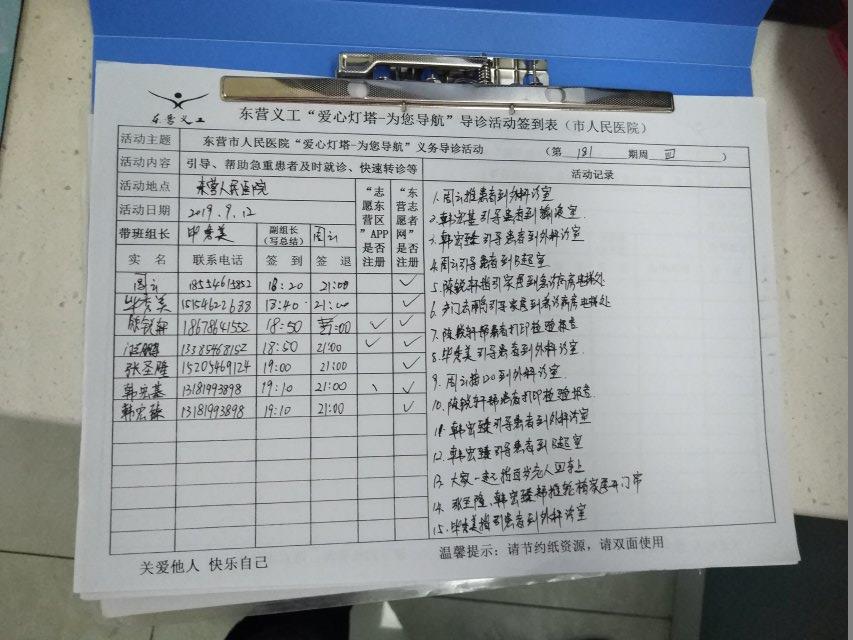 东营义工
东营义工“爱心灯塔-为您导航”导诊活动签到表（市人民医院）
活动主题 东营市人民医院“爱心灯塔-为您导航”义务导诊活动 （第 181 期周 四 ）
活动内容 引导、帮助急重患者及时就诊、快速转诊等 活动记录
活动地点 东营人民医院
活动日期 2019.9.12
带班组长 毕秀美 副组长（写总结） 周云
“志愿东营区”APP是否注册
“东营志愿者网”是否注册
实 名 联系电话 签 到 签 退
周云 18554615852 18:20 21:00 ✓
毕秀美 15154622638 21:00 ✓
18678641552 18:50 21:00 ✓ ✓
13385468152 18:50 21:00 ✓ ✓
张圣隆 15205469124 19:00 21:00 ✓
韩宏基 13181993898 19:10 21:00 ✓
韩宏臻 13181993898 19:10 21:00 ✓
1.周云推患者到外科诊室
2.韩宏基引导患者到输液室.
3.韩宏臻引导患者到外科诊室
4.周云引导患者到B超室
5.陈锐轩指引家属到急诊病房电梯处
6. 引导家属到急诊病房电梯处
7.陈锐轩帮患者打印检验报告
8.毕秀美引导患者到外科诊室.
9.周云 到外科诊室.
10.陈锐轩帮患者打印检验报告.
11.韩宏臻引导患者到外科诊室
12.韩宏臻引导患者到B超室
13.大家一起 老人回车上
14.张圣隆、韩宏臻帮推轮椅家属开门帘
15.毕秀美指引患者到外科诊室
关爱他人 快乐自己
温馨提示：请节约纸资源，请双面使用